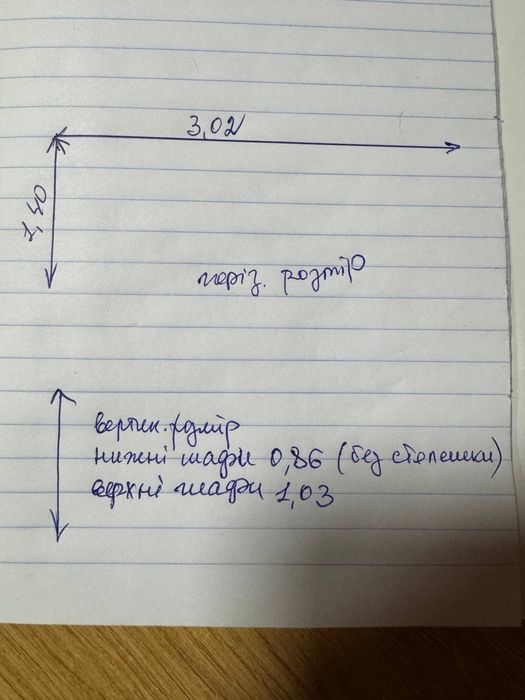 3,02
1,40
горіз. розмір
вертик. розмір
нижні шафи 0,86 (без стелешки)
верхні шафи 1,03